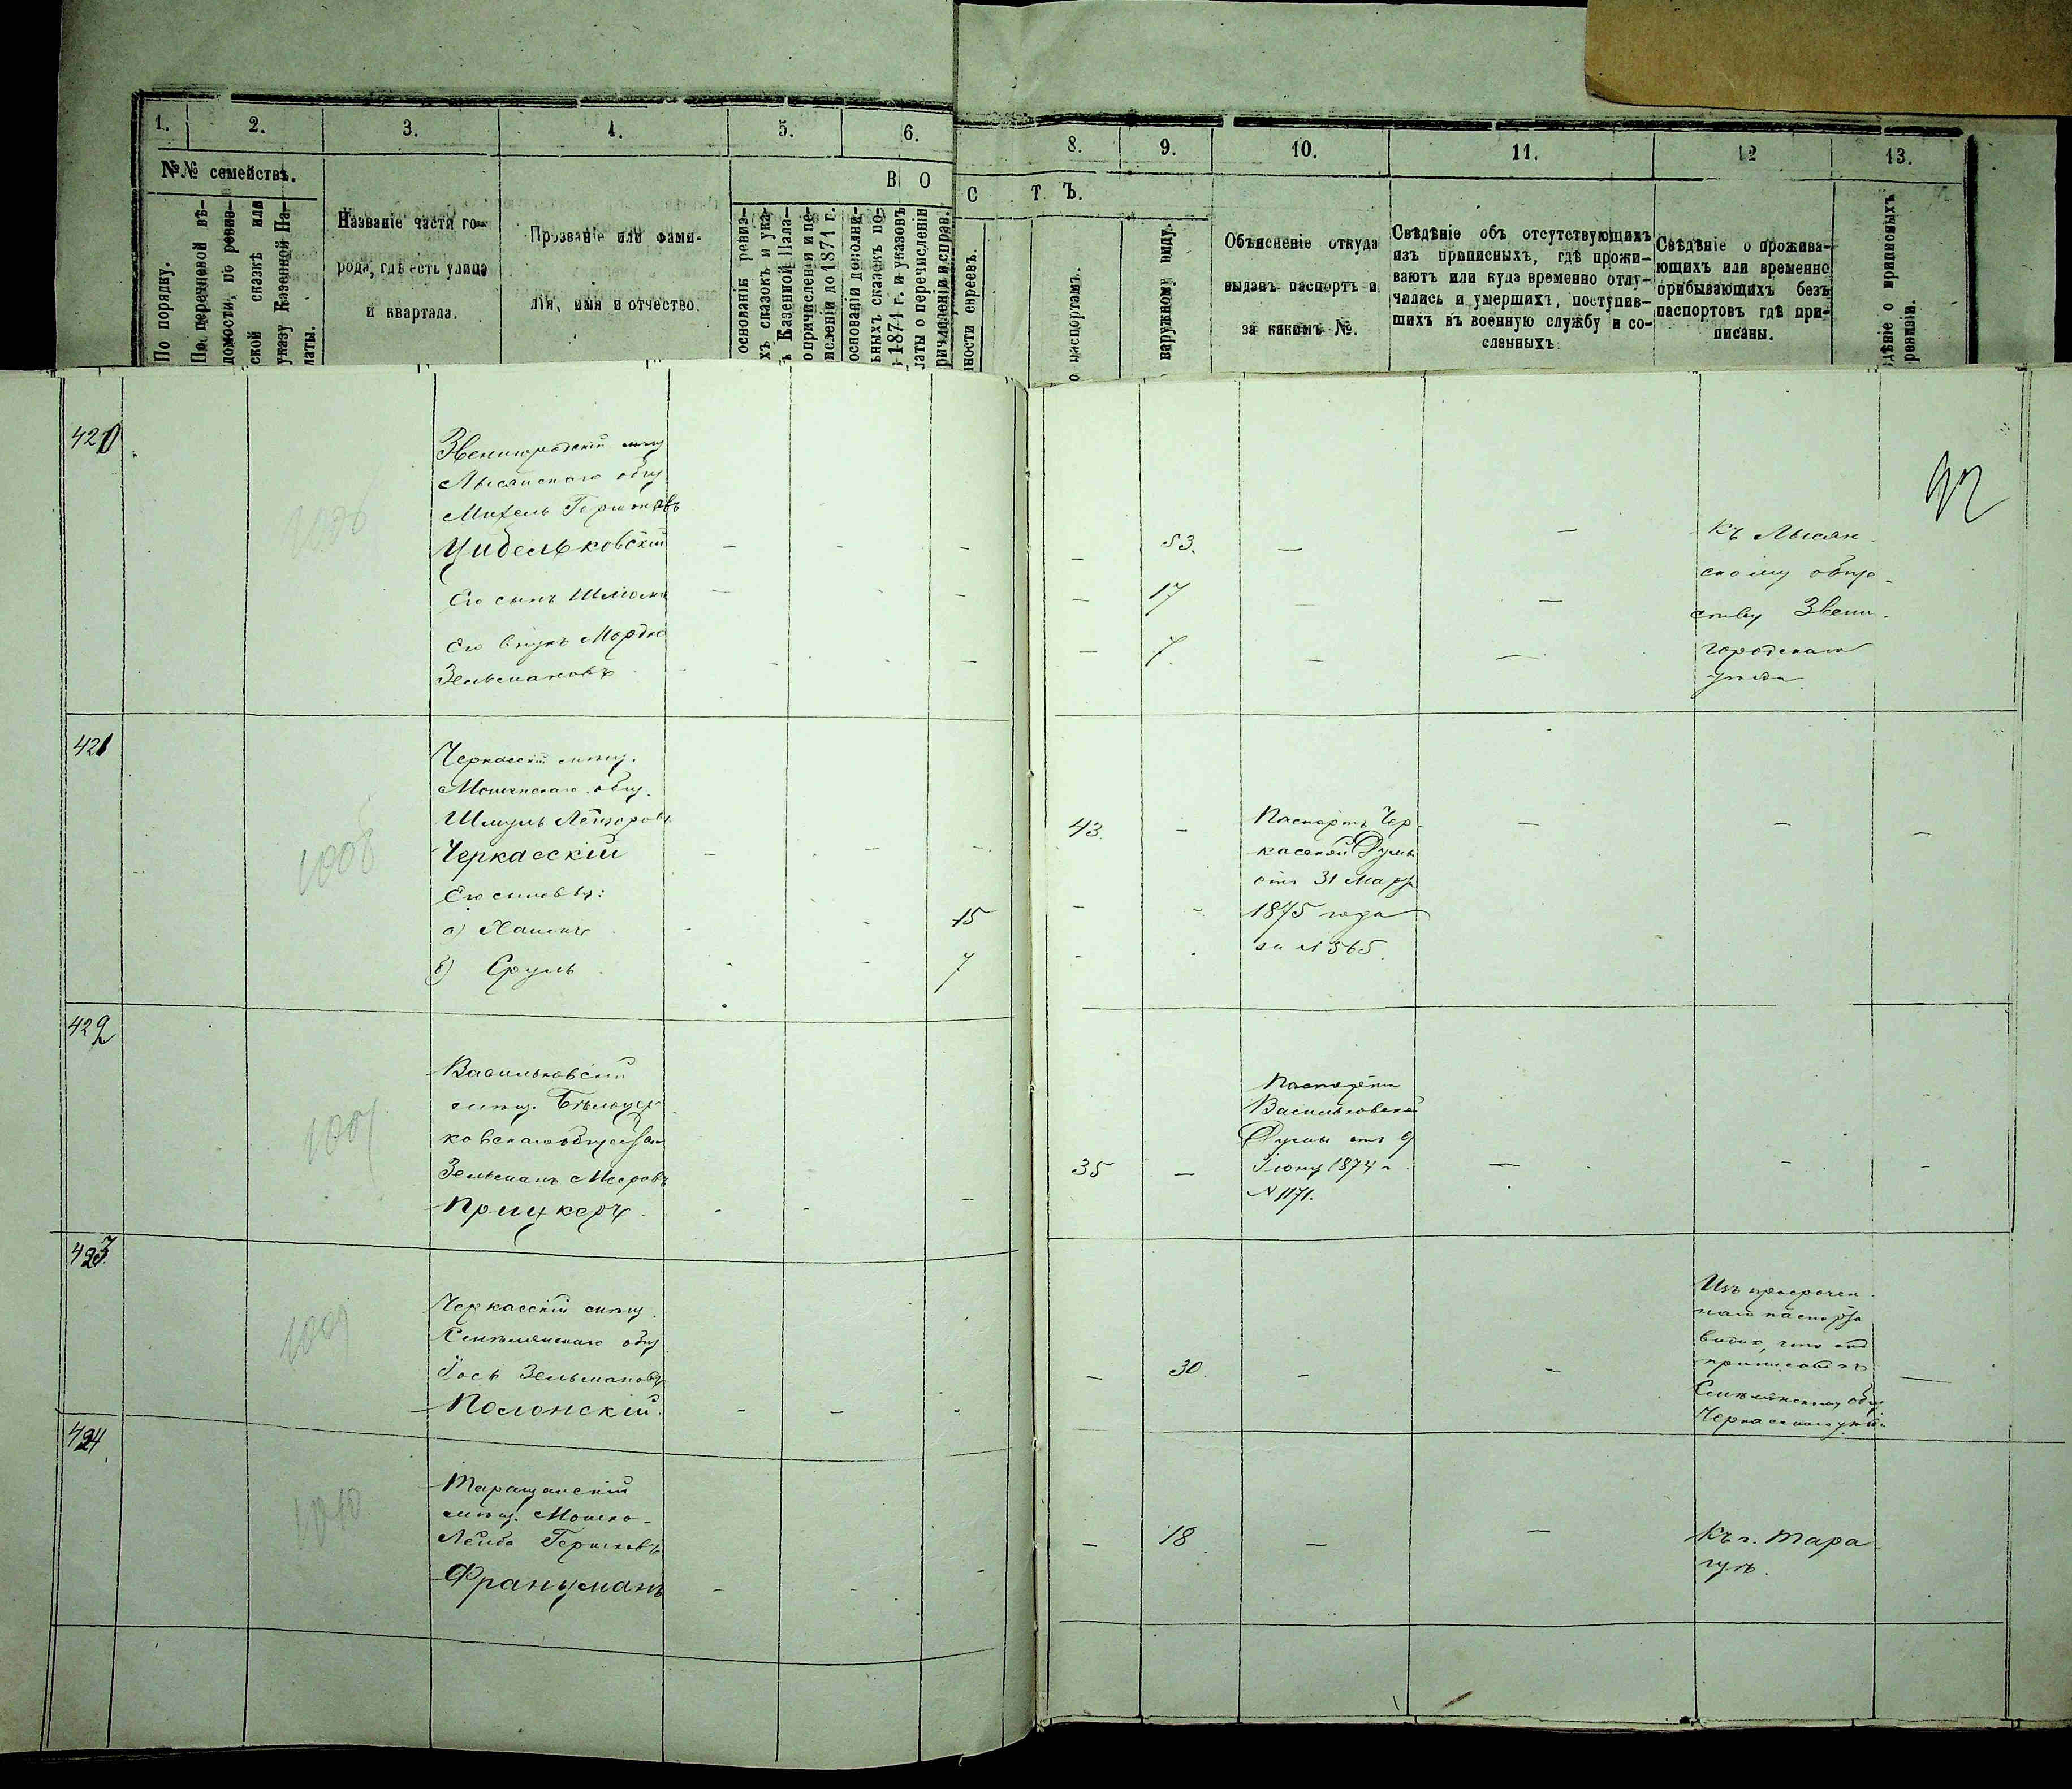 1. 2. 3. 4. 5. 6. 8. 9. 10. 11. 12 13.
№№ семействъ.
В О
С Т Ъ.
По порядку.
По перечневой вѣ-
домости, по ревиз-
ской сказкѣ или
указу Казенной Па-
латы.
Названіе части го-
рода, гдѣ есть улица
и квартала.
Прозваніе или фами-
лія, имя и отчество.
основаніи ревиз-
хъ сказокъ и ука-
ъ Казенной Пала-
о причисленіи и пе-
исленіи до 1871 г.
основаніи дополни-
ьныхъ сказокъ по-
1871 г. и указовъ
латы о перечисленіи
ричисленіи и справ.
ности евреевъ.
о паспортамъ.
наружному виду.
Объясненіе откуда
выданъ паспортъ и
за какимъ №.
Свѣдѣніе объ отсутствующихъ
изъ приписныхъ, гдѣ прожи-
ваютъ или куда временно отлу-
чились и умершихъ, поступив-
шихъ въ военную службу и со-
сланныхъ
Свѣдѣніе о прожива-
ющихъ или временно
прибывающихъ безъ
паспортовъ гдѣ при-
писаны.
дѣніе о приписныхъ
ревизіи.
420
Звенигородскій мѣщ
Лысянскаго общ
Михель Гершковъ
Цибельковскій
Его сынъ Шлёма
Его внукъ Мордко
Зельмановъ
53.
17
7.
Къ Лысян-
скому обще-
ству Звени-
городскаго
уѣзда
421
1006
Черкасскій мѣщ.
Мошенскаго общ.
Шмуль Лейзоровъ
Черкасскій
Его сыновья:
а) Хаимъ
б) Сруль
15
7
43.
Паспортъ Чер-
касской Думы
отъ 31 Марта
1875 года
за № 565.
422
Васильковскій
мѣщ. Бѣлоцер
ковскаго общества
Зельманъ Мееровъ
Прицкеръ
35
Паспортъ
Васильковской
Думы отъ 9
Іюня 1874 г.
№ 1171.
423
1009
Черкасскій мѣщ.
Смѣлянскаго общ
Іось Зельмановъ
Полонскій
30.
Изъ просрочен-
наго паспорта
видно, что онъ
приписанъ къ
Смѣлянскому общ
Черкасскаго уѣзда
424
1010
Таращанскій
мѣщ. Мошко-
Лейба Гершковъ
Францманъ
18
Къ г. Тара
щѣ.